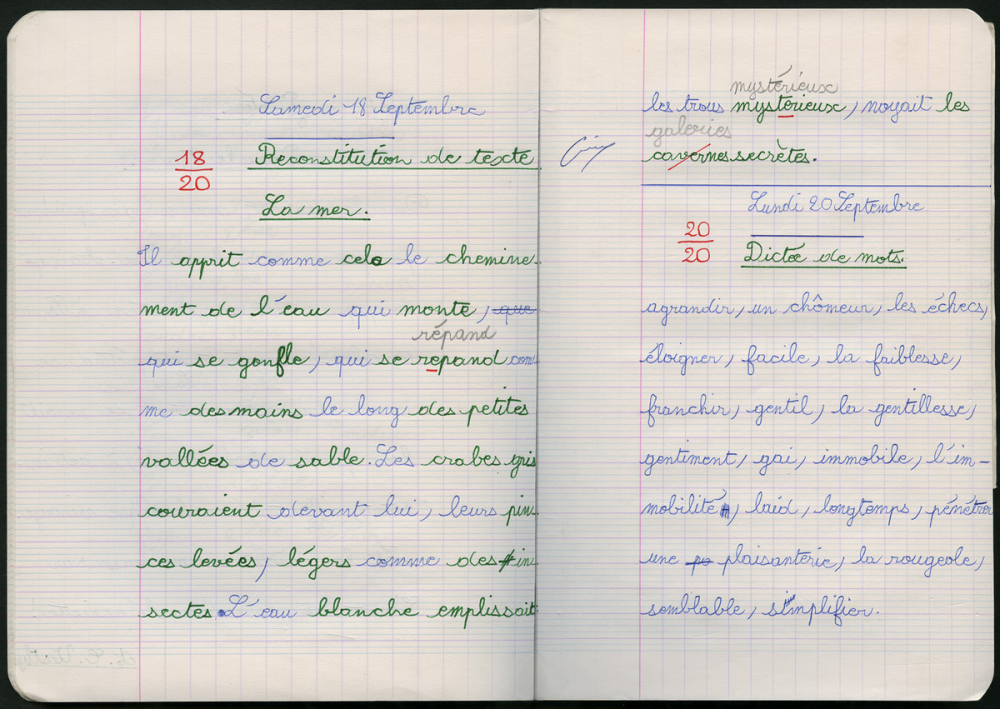 Samedi 18 Septembre
18
20
Reconstitution de texte
La mer.
Il apprit comme cela le chemine-
ment de l'eau qui monte, que
répand
qui se gonfle, qui se repand com
me des mains le long des petites
vallées de sable. Les crabes gris
couraient devant lui, leurs pin
ces levées, légers comme des in
sectes. L'eau blanche emplissait
mystérieux
les trous mysterieux, noyait les
galeries
cavernes secrètes.
Lundi 20 Septembre
20
20
Dictée de mots.
agrandir, un chômeur, les échecs,
éloigner, facile, la faiblesse,
franchir, gentil, la gentillesse,
gentiment, gai, immobile, l'im-
mobilité, laid, longtemps, pénétrer
une po plaisanterie, la rougeole,
semblable, simplifier.